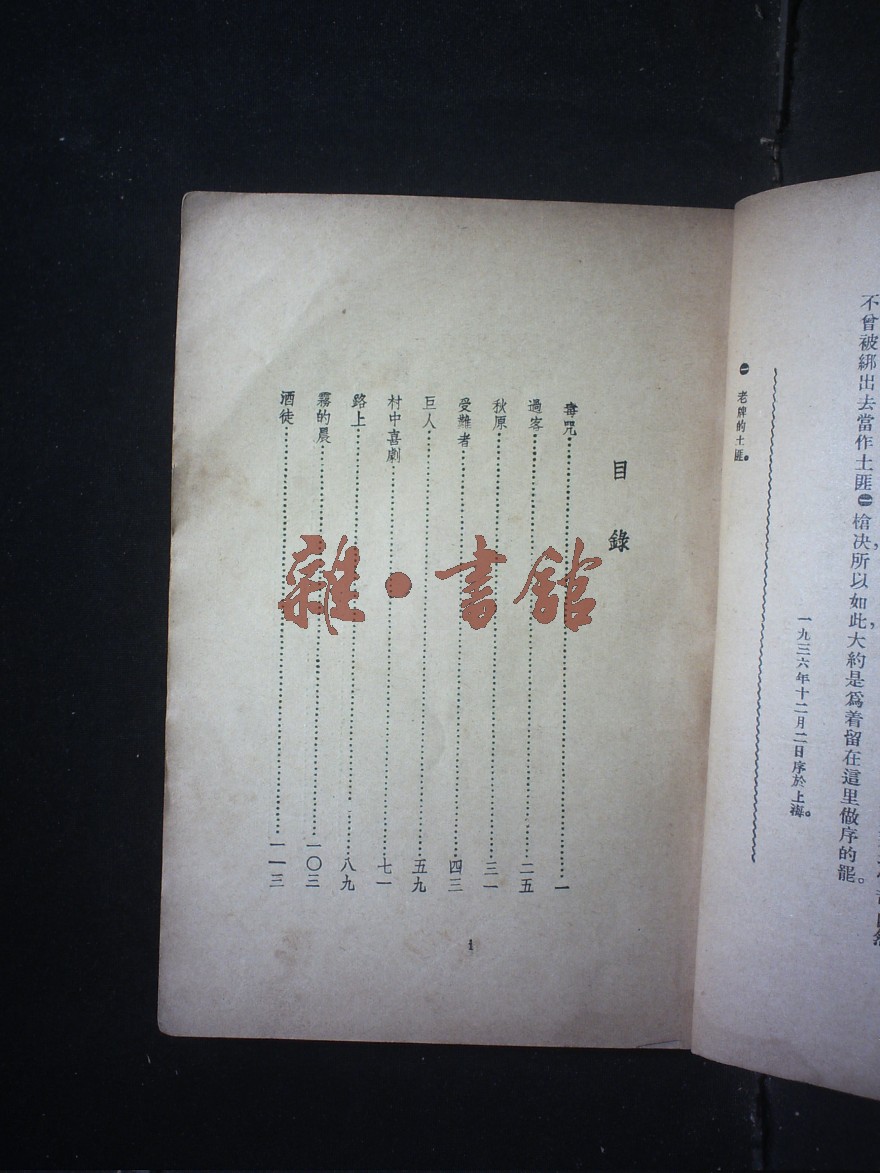 不曾被綁出去當作土匪㊀，槍決所以如此，大約是爲着留在這里做序的罷。
一九三六年十二月二日序於上海。
㊀ 老牌的土匪。
目錄
毒咒……一
過客……二五
秋原……三一
受難者……四三
巨人……五九
村中喜劇……七一
路上……八九
霧的晨……一〇三
酒徒……一一三
1
雜·書館